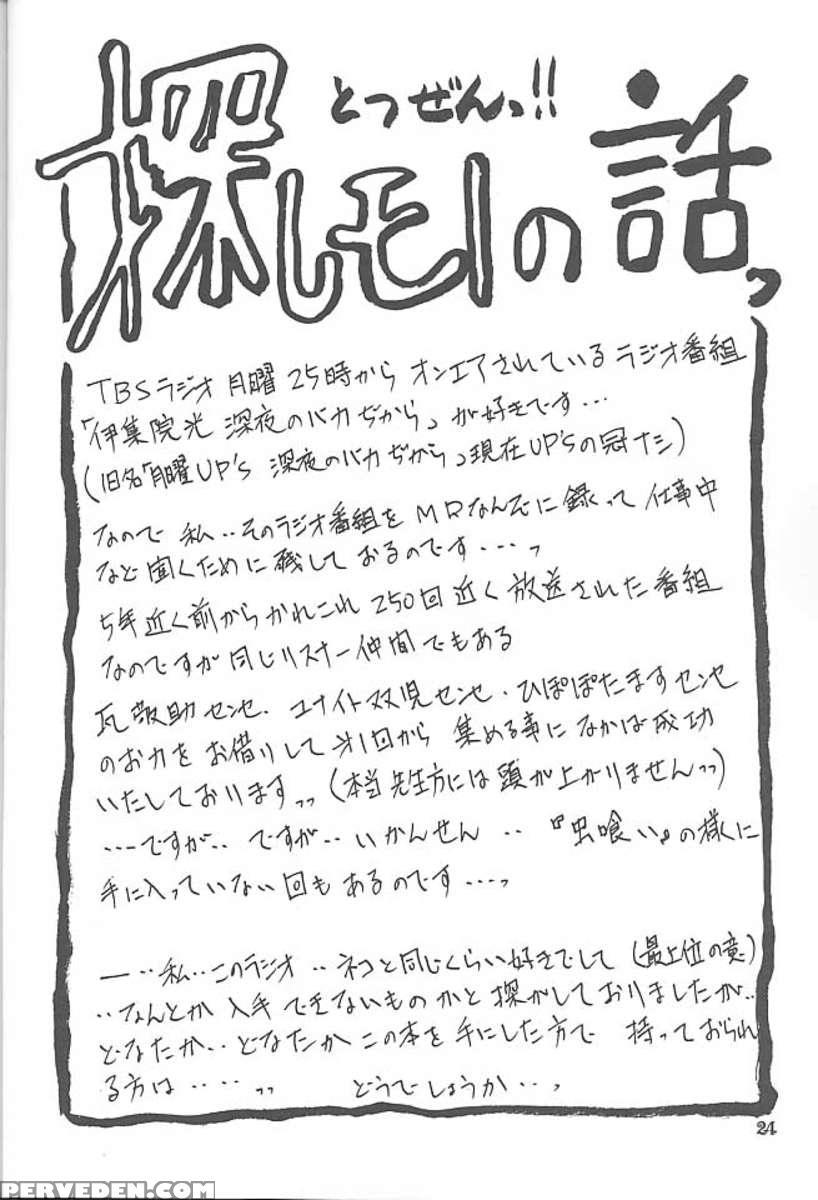 とつぜんっ!!
探しモノの話っ
TBSラジオ 月曜 25時から オンエアされている ラジオ番組
「伊集院光 深夜のバカぢから」が好きです…
(旧名「月曜UP's 深夜のバカぢから」現在UP'sの冠ナシ)
なので 私‥そのラジオ番組を MDなんぞに録って 仕事中
など聞くために残しておるのです…‥っ
5年近く前からかれこれ250回近く放送された番組
なのですが同じリスナー仲間でもある
瓦敬助センセ・ユナイト双児センセ・ひぽぽたますセンセ
のお力をお借りして 第1回から 集める事に なかば成功
いたしておりますっっ(本当先生方には頭が上がりませんっっ)
‥‥ですが‥ ですが‥ いかんせん ‥ 『虫喰い』の様に
手に入っていない回もあるのです…‥っ
ー‥私‥このラジオ‥ネコと同じくらい好きでして(最上位の意)
‥なんとか入手できないものかと探がしておりましたが‥
どなたか‥どなたかこの本を手にした方で 持っておられ
る方は‥‥っっ どうでしょうか‥っ
24
PERVEDEN.COM